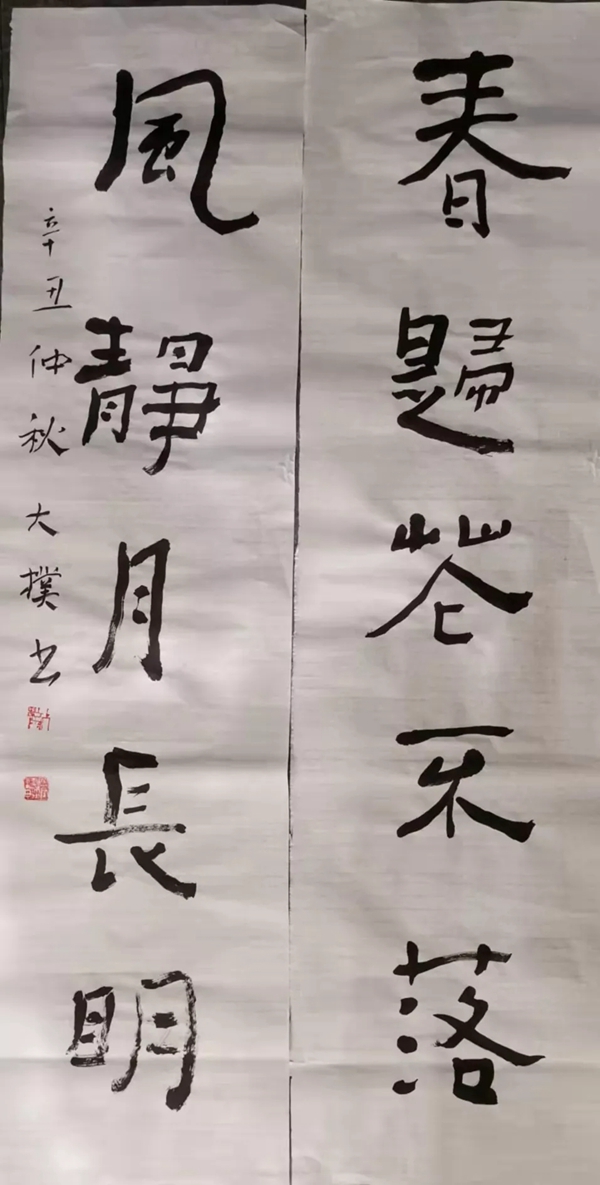 春歸花不落
風靜月長明
辛丑仲秋大撲书